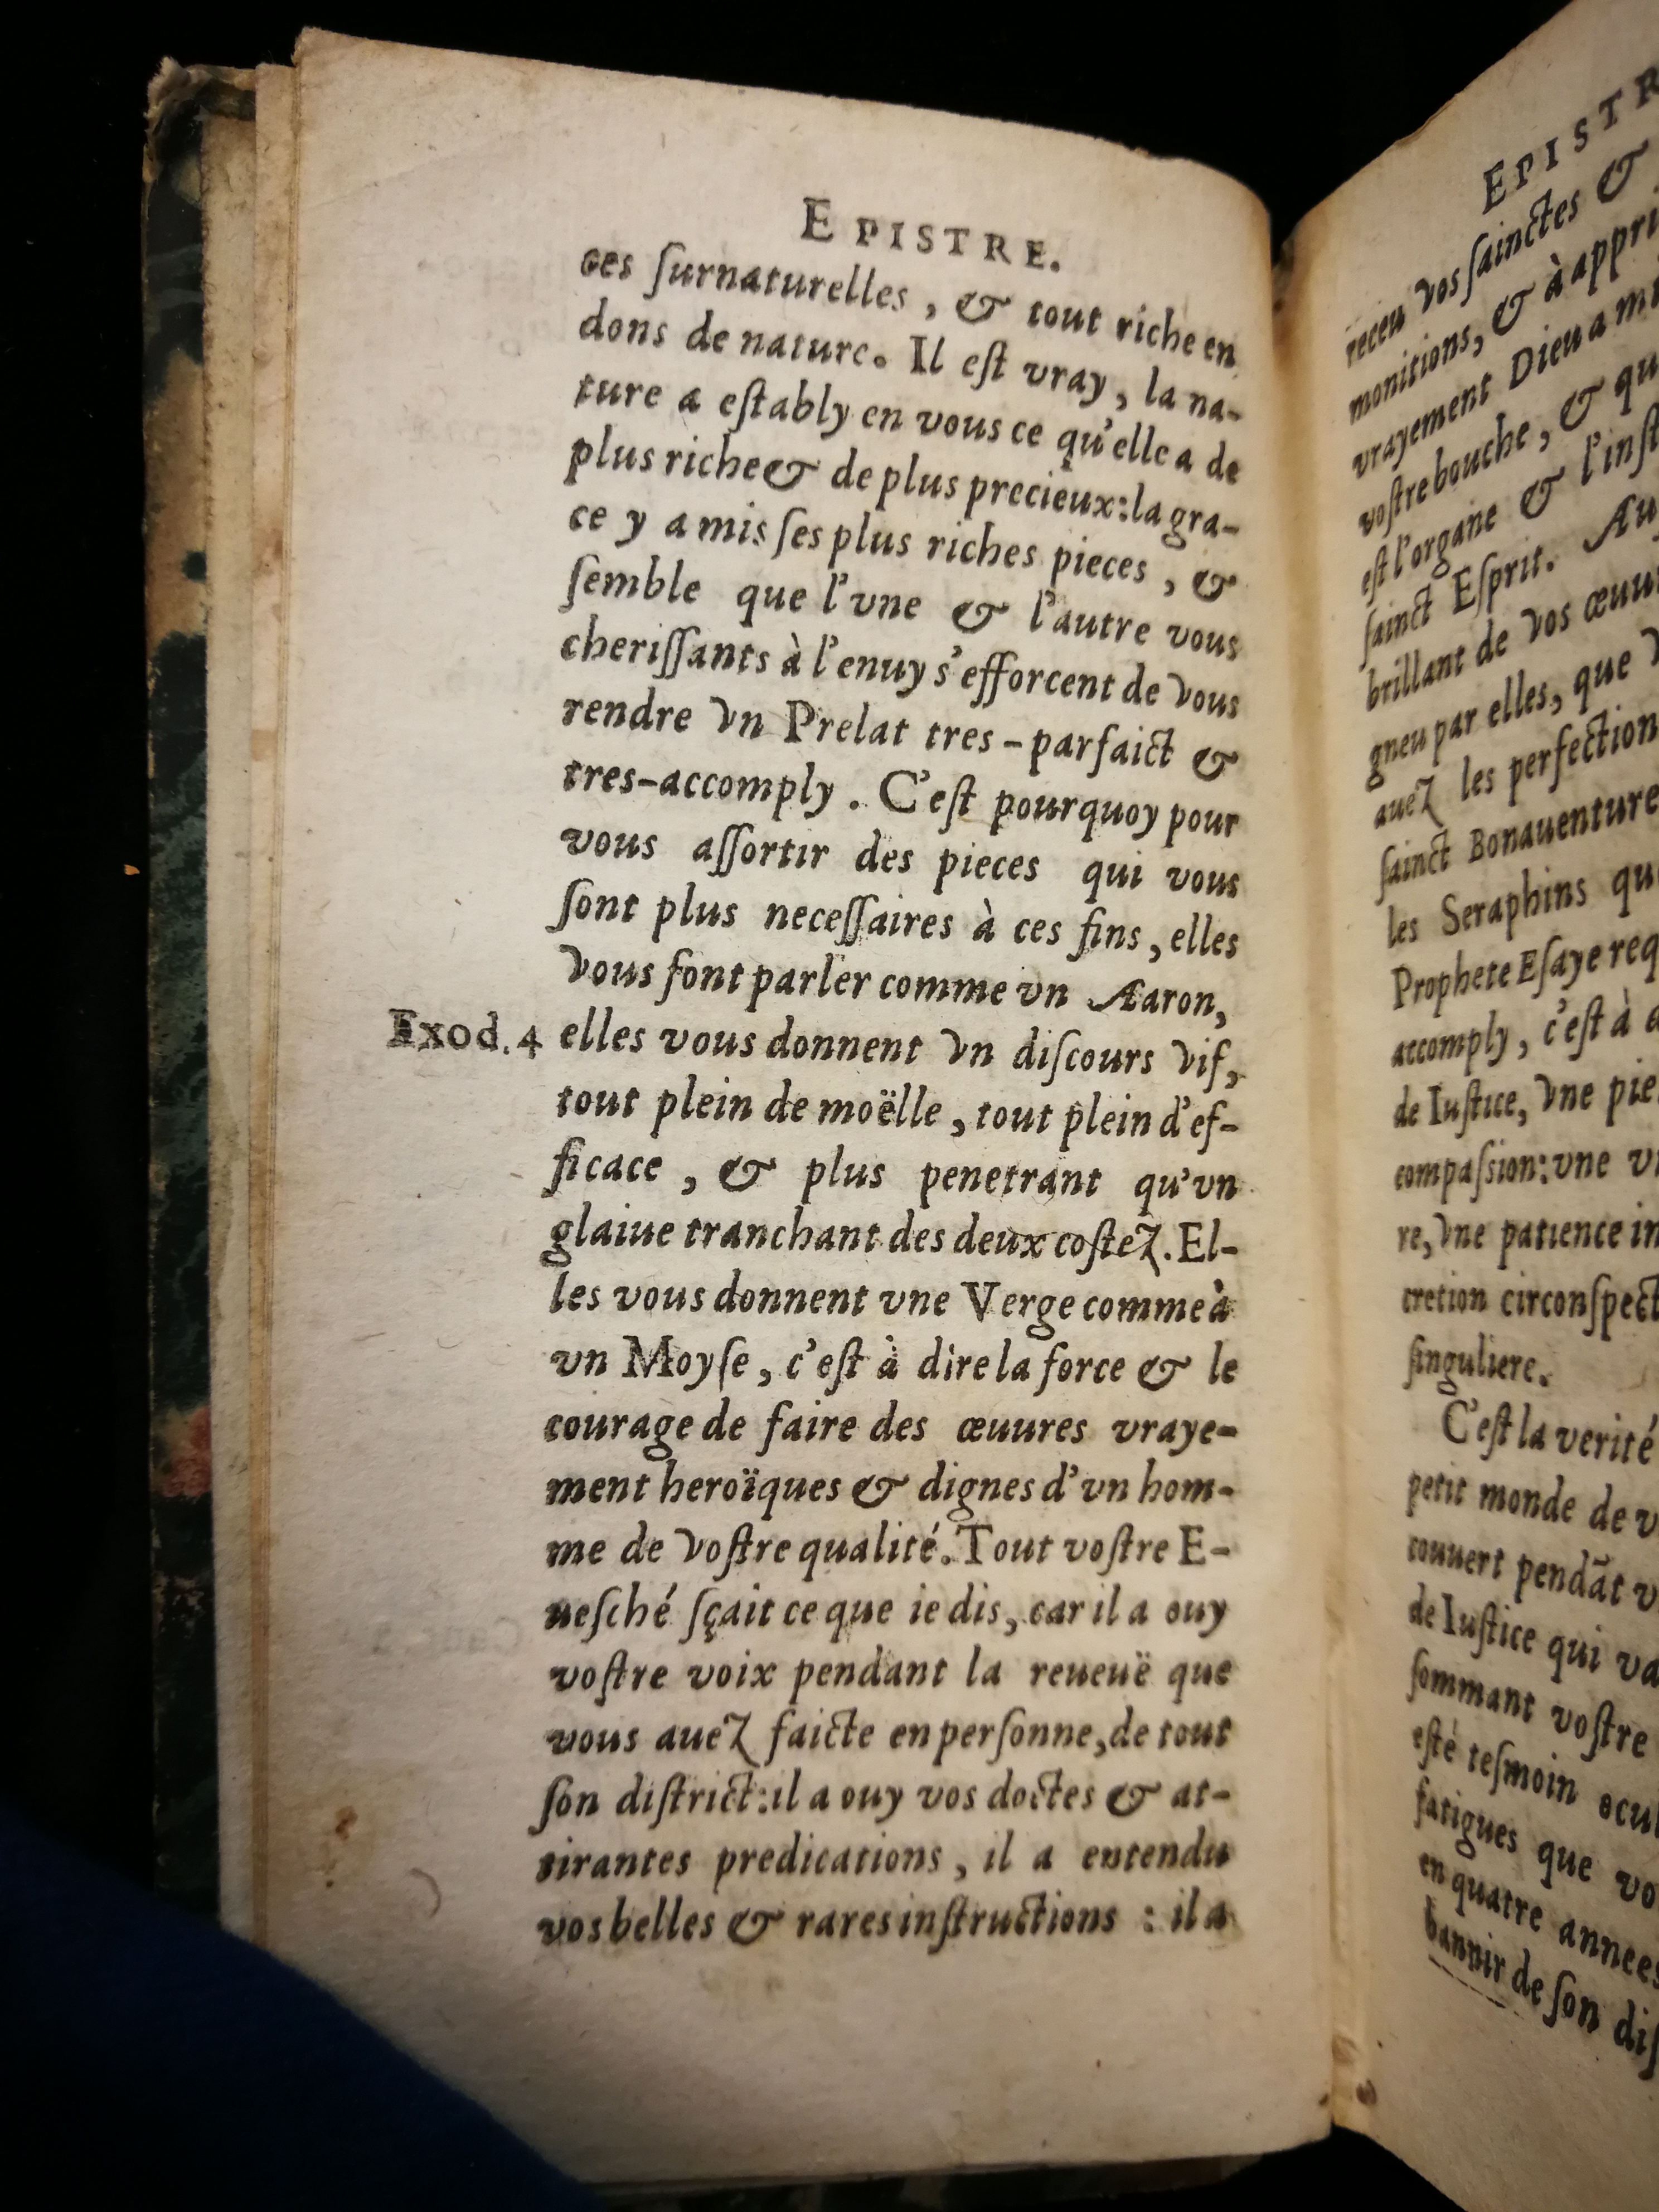 EPISTRE.
ces ſurnaturelles, & tout riche en
dons de nature. Il eſt vray, la na-
ture a eſtably en vous ce qu'elle a de
plus riche & de plus precieux: la gra-
ce y a mis ſes plus riches pieces, &
ſemble que l'vne & l'autre vous
cheriſſants à l'enuy s'efforcent de vous
rendre vn Prelat tres-parfaict &
tres-accomply. C'eſt pourquoy pour
vous aſſortir des pieces qui vous
ſont plus neceſſaires à ces fins, elles
vous font parler comme vn Aaron,
Exod. 4
elles vous donnent vn diſcours vif,
tout plein de moëlle, tout plein d'ef-
ficace, & plus penetrant qu'vn
glaiue tranchant des deux coſtez. El-
les vous donnent vne Verge comme à
vn Moyſe, c'eſt à dire la force & le
courage de faire des œuures vraye-
ment heroïques & dignes d'vn hom-
me de voſtre qualité. Tout voſtre E-
ueſché ſçait ce que ie dis, car il a ouy
voſtre voix pendant la reueuë que
vous auez faicte en perſonne, de tout
ſon diſtrict: il a ouy vos doctes & at-
tirantes predications, il a entendu
vos belles & rares inſtructions : il a
EPISTR
receu vos ſainctes &
monitions, & à appri
vrayement Dieu a
voſtre bouche, & qu
eſt l'organe & l'inſt
ſainct Eſprit. Au
brillant de vos œuu
gneu par elles, que
auez les perfection
ſainct Bonauenture
les Seraphins qu
Prophete Eſaye req
accomply, c'eſt à
de Iuſtice, vne pie
compaſsion: vne
re, vne patience in
cretion circonſpect
ſinguliere.
C'eſt la verité
petit monde de
couuert pendāt
de Iuſtice qui va
ſommant voſtre
eſté teſmoin ocul
fatigues que vo
en quatre annees
bannir de ſon diſ